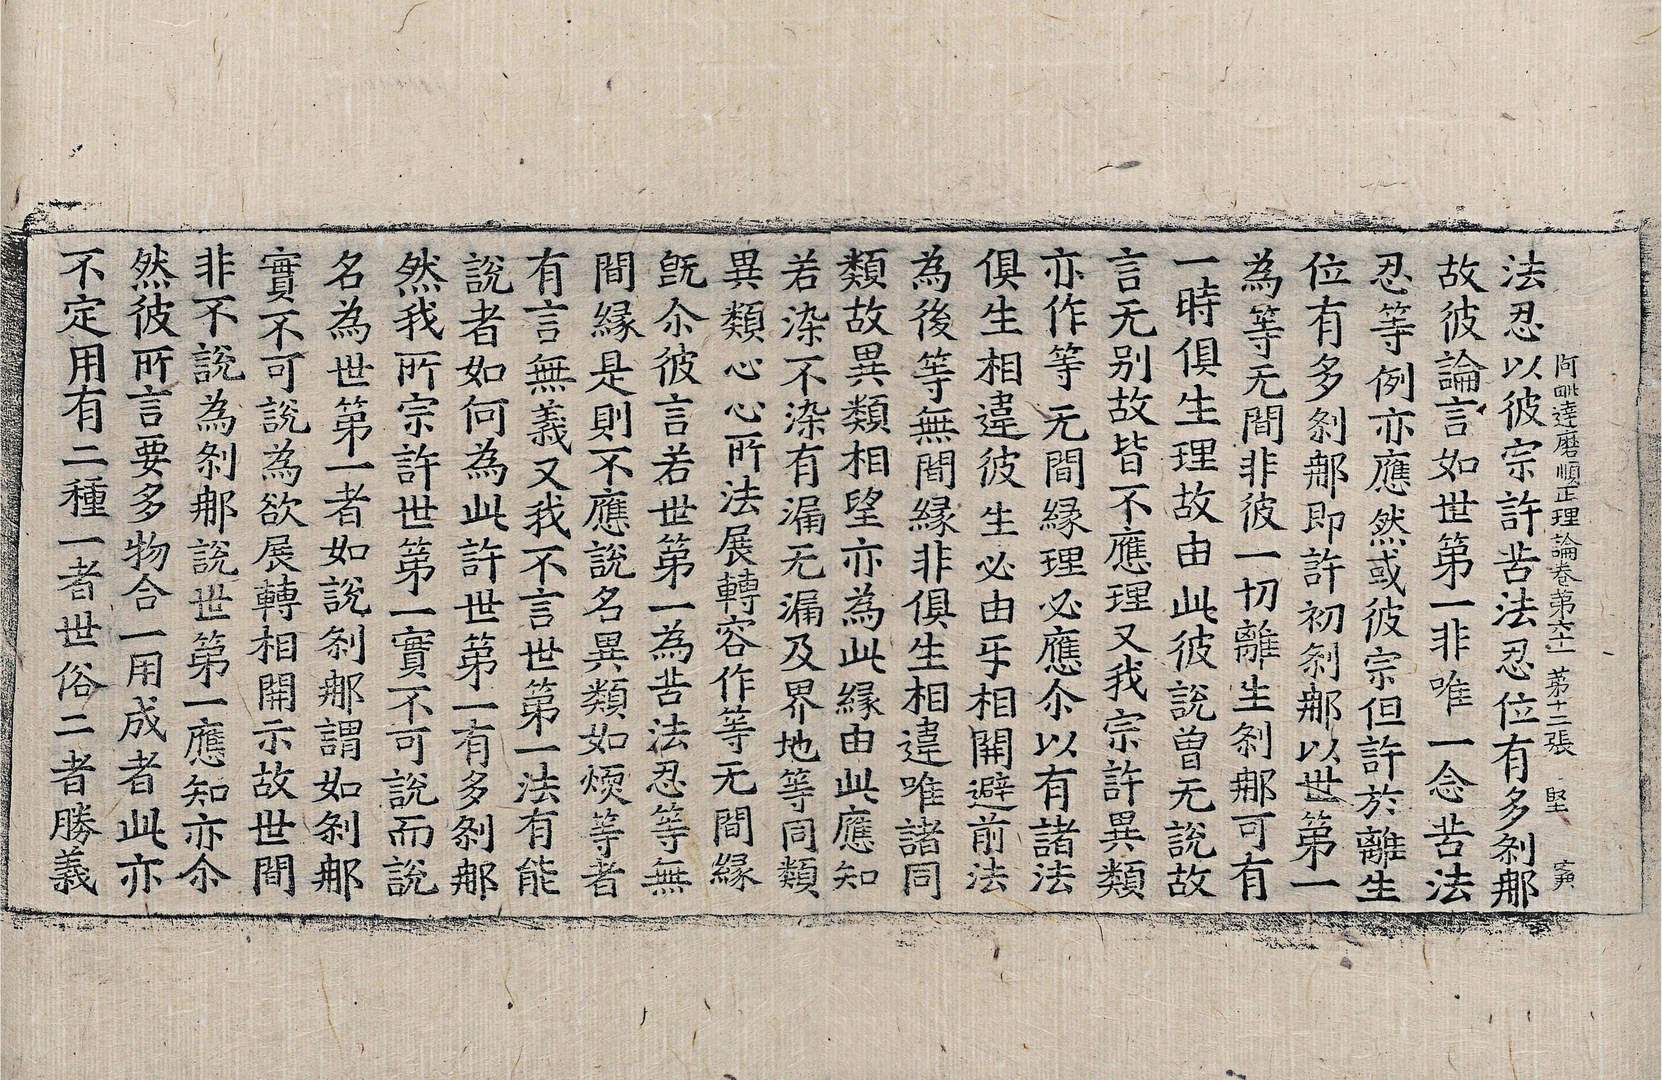 阿毗達磨順正理論卷第六十二 第十二張 堅
法忍以彼宗許苦法忍位有多刹那
故彼論言如世第一非唯一念苦法
忍等例亦應然或彼宗但許於離生
位有多刹那即許初刹那以世第一
為等无間非彼一切離生刹那可有
一時俱生理故由此彼說曾无說故
言无別故皆不應理又我宗許異類
亦作等无間縁理必應尒以有諸法
俱生相違彼生必由乎相開避前法
為後等無間縁非俱生相違唯諸同
類故異類相望亦為此縁由此應知
若染不染有漏无漏及界地等同類
異類心心所法展轉容作等无間縁
旣尒彼言若世第一為苦法忍等無
間縁是則不應說名異類如煗等者
有言無義又我不言世第一法有能
說者如何為此許世第一有多刹那
然我所宗許世第一實不可說而說
名為世第一者如說刹那謂如刹那
實不可說為欲展轉相開示故世間
非不說為刹那說世第一應知亦尒
然彼所言要多物合一用成者此亦
不定用有二種一者世俗二者勝義